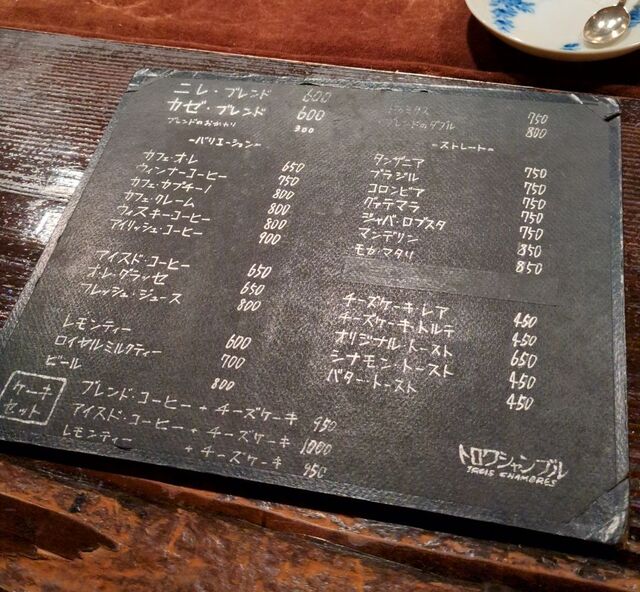 ニレ・ブレンド 600
カゼ・ブレンド 600
ブレンドのおかわり 300
ーバリエーションー
カフェ・オレ 650
ウィンナーコーヒー 750
カフェ・カプチーノ 800
カフェ・クレーム 800
ウィスキーコーヒー 800
アイリッシュ・コーヒー 900
アイスド・コーヒー 650
オ・レ・グラッセ 650
フレッシュ・ジュース 800
レモンティー 600
ロイヤルミルクティー 700
ビール 800
ケーキセット
ブレンド・コーヒー + チーズケーキ 950
アイスド・コーヒー + チーズケーキ 1000
レモンティー + チーズケーキ 950
750
ブレンドのダブル 800
ーストレートー
タンザニア 750
ブラジル 750
コロンビア 750
グァテマラ 750
ジャバ・ロブスタ 750
マンデリン 850
モカ・マタリ 850
チーズケーキ・レア 450
チーズケーキ・トルテ 450
オリジナル・トースト 650
シナモン・トースト 450
バター・トースト 450
トロワシャンブル
TROIS CHAMBRES